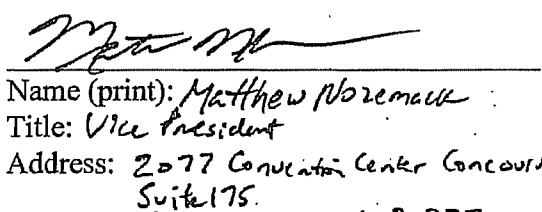 Name (print): Matthew Nozemack
Title: Vice President
Address: 2077 Convention Center Concourse
Suite 175.